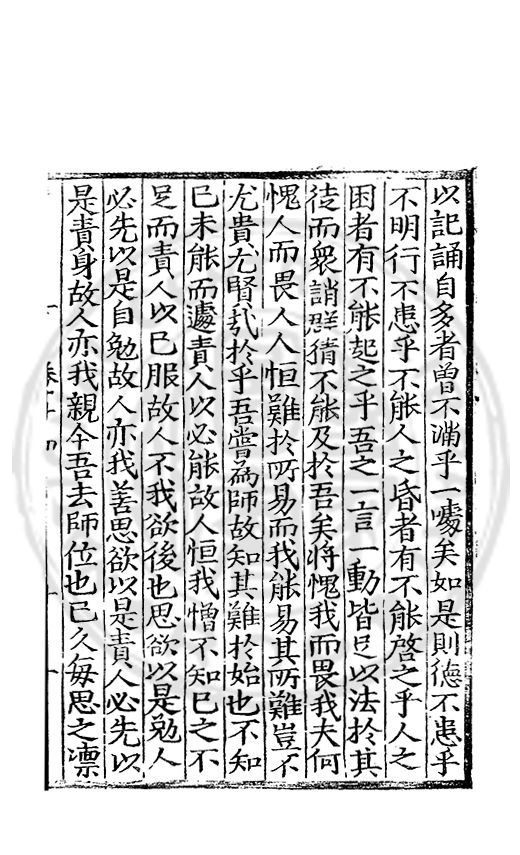 以記誦自多者曾不滿乎一噱矣如是則德不患乎
不明行不患乎不能人之昏者有不能啓之乎人之
困者有不能起之乎吾之一言一動皆足以法於其
徒而衆誚群猜不能及於吾矣將愧我而畏我夫何
愧人而畏人人恒難於所易而我能易其所難豈不
尤貴尤賢哉於乎吾嘗為師故知其難於始也不知
已未能而遽責人以必能故人恒我憎不知已之不
足而責人以已服故人不我欲後也思欲以是勉人
必先以是自勉故人亦我善思欲以是責人必先以
是責身故人亦我親今吾去師位也已久每思之凛